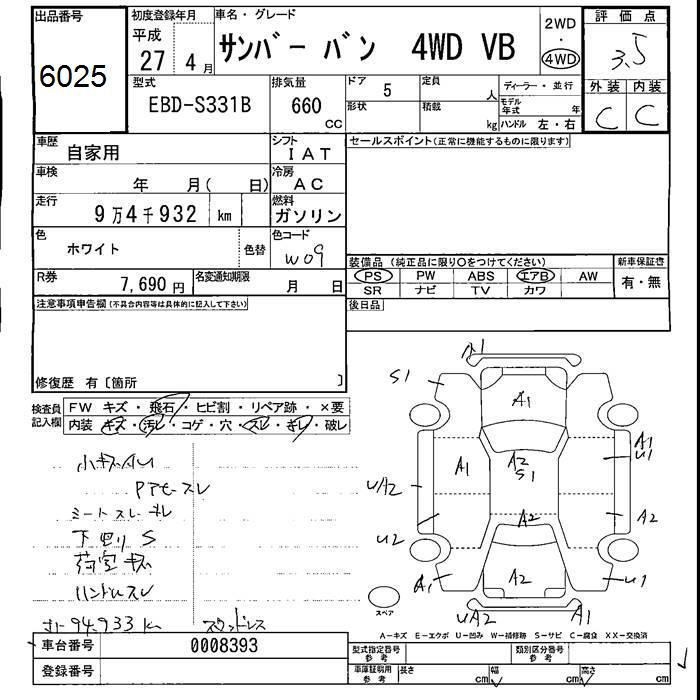 出品番号 初度登録年月 車名・グレード 2WD 評価点
6025 平成 27 4月 サンバー バン 4WD VB ・ 4WD 3.5
型式 排気量 ドア 定員 ディーラー・並行 外装 内装
EBD-S331B 660 cc 5 人 モデル年式 年 C C
形状 積載 kg ハンドル 左・右
車歴 自家用 シフト IAT セールスポイント(正常に機能するものに限ります)
車検 年 月( 日) 冷房 AC
走行 9万4千932 km 燃料 ガソリン
色 ホワイト 色替 色コード W09
装備品 (純正品に限り○をつけてください) 新車保証書
R券 7,690円 名変通知期限 月 日 PS PW ABS エアB AW 有・無
SR ナビ TV カワ
注意事項申告欄(不具合内容等は具体的に記入して下さい) 後日品
修復歴 有〔箇所 〕
検査員記入欄 FW キズ・飛石・ヒビ割・リペア跡・×要
内装 キズ・汚レ・コゲ・穴・スレ・キレ・破レ
A1
S1
A1
A1 A2 S1 A1 U1
U/A2
A2 A2
U2
A1 A2 U1
UA2 A1
小キズ凹
シートスレ キレ
下回り S
荷室キズ
ハンドルスレ
94,933 km
スペア
A−キズ E−エクボ U−凹み W−補修跡 S−サビ C−腐食 XX−交換済
車台番号 0008393 型式指定番号 参考 類別区分番号 参考
登録番号 車庫証明用 参考 長さ cm 幅 cm 高さ cm